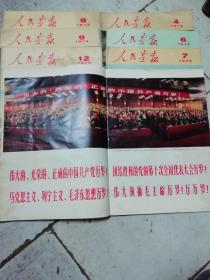 人民画报
8
人民画报
4
人民画报
9
人民画报
6
人民画报
12
人民画报
7
正确的中国共产党万岁！
伟大的、光荣的、正确的中国共产党万岁！
马克思主义、列宁主义、毛泽东思想万岁！
团结胜利的党的第十次全国代表大会万岁！
伟大领袖毛主席万岁！万万岁！